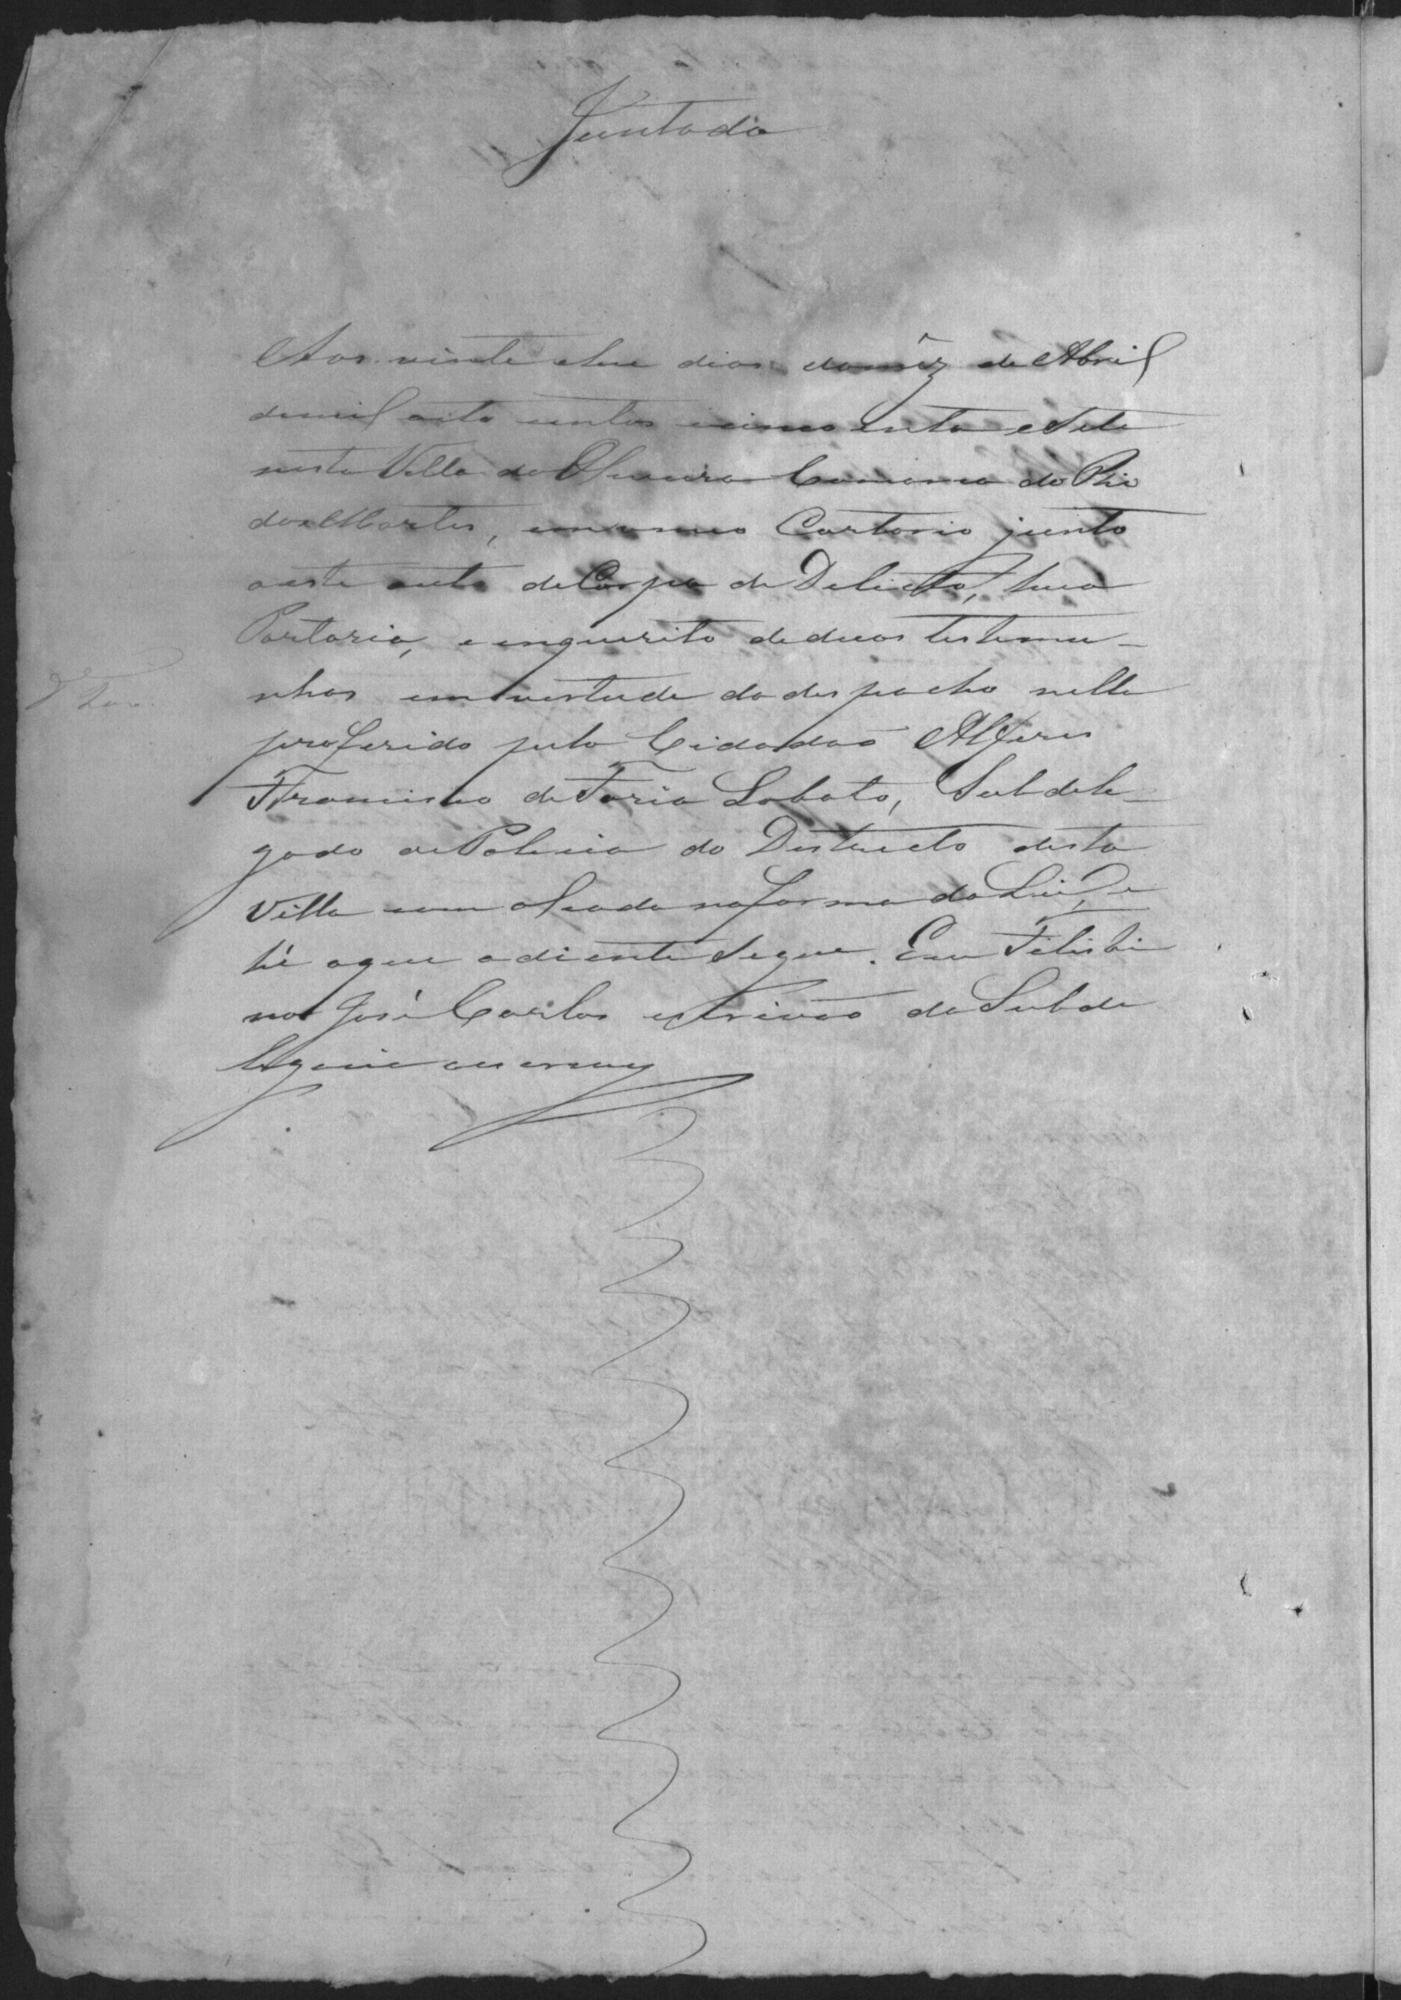 Juntada
Aos vinte e hum dias do mêz de Abril
de mil oito centos e cinco enta e Sete
nesta Villa de Oliveira Comarca do Rio
das Mortes, em o meo Cartorio junto
a este auto de Corpo de Delicto, hua
Portaria, e enquerito de duas testemu-
nhas em vertude do despacho nelle
proferido pelo Cidadão Alferes
Francisco de Faria Lobato, Subdele-
gado de Policia do Destricto desta
Villa com alçada na forma da Lei, e
hé o que a diente Segue. Eu Felisbi
no José Carlos escrivão da Subde
legacia o escrevy